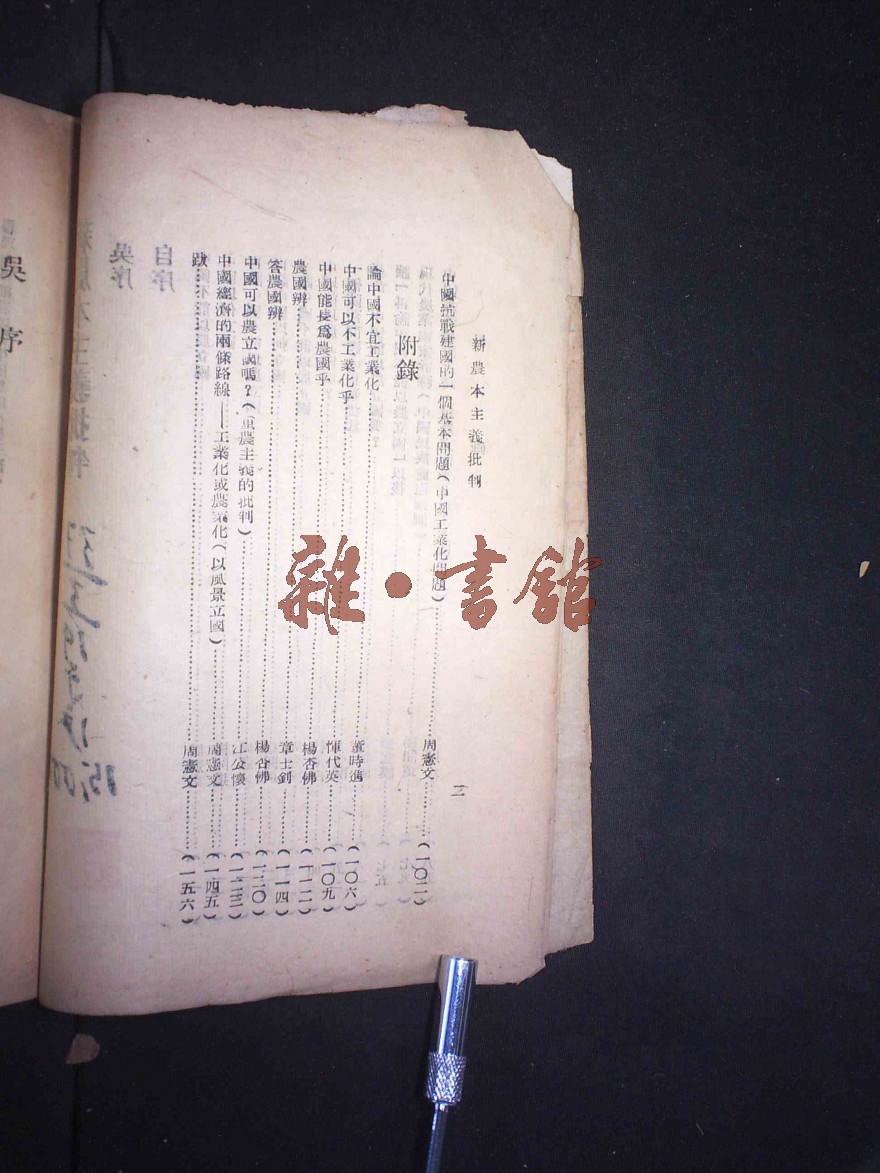 新農本主義批判
二
中國抗戰建國的一個基本問題(中國工業化問題)……周憲文……(一〇二)
附錄
論中國不宜工業化……董時進……(一〇六)
中國可以不工業化乎……惲代英……(一〇九)
中國能長爲農國乎……楊杏佛……(一一二)
農國辨……章士釗……(一一四)
答農國辨……楊杏佛……(一二〇)
中國可以農立國嗎?(重農主義的批判)……江公懷……(一二三)
中國經濟的兩條路線——工業化或農業化(以風景立國)……周憲文……(一四五)
跋……周憲文……(一五六)
吳序
雜·書館
15,00